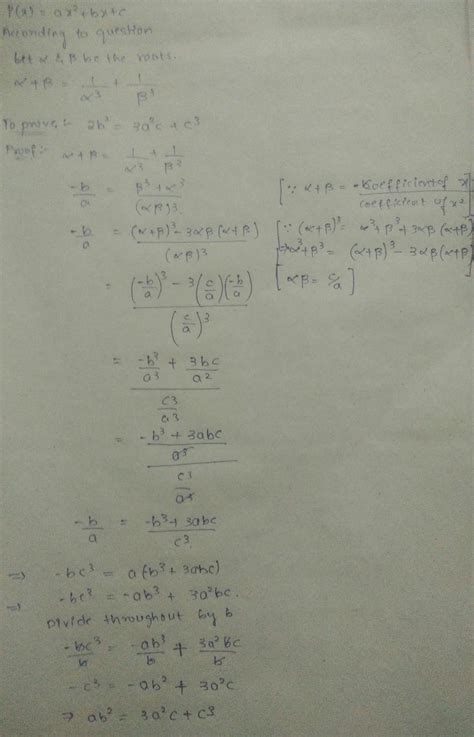 P(x) = ax²+bx+c
According to question
Let α & β be the roots.
α+β = 1/α³ + 1/β³
To prove:- 2b² = 3a²c + c³
Proof:- α+β = 1/α³ + 1/β³
-b/a = (β³+α³)/(αβ)³ [∵ α+β = -coefficient of x / coefficient of x²]
-b/a = ((α+β)³ - 3αβ(α+β))/(αβ)³ [∵ (α+β)³ = α³+β³+3αβ(α+β)
⇒ α³+β³ = (α+β)³ - 3αβ(α+β)]
= ((-b/a)³ - 3(c/a)(-b/a))/(c/a)³ [αβ = c/a]
= (-b³/a³ + 3bc/a²)/(c³/a³)
= ((-b³ + 3abc)/a³)/(c³/a³)
-b/a = (-b³+3abc)/c³
⇒ -bc³ = a(b³+3abc)
⇒ -bc³ = -ab³ + 3a²bc.
Divide throughout by b
-bc³/b = -ab³/b + 3a²bc/b
-c³ = -ab² + 3a²c
⇒ ab² = 3a²c + c³